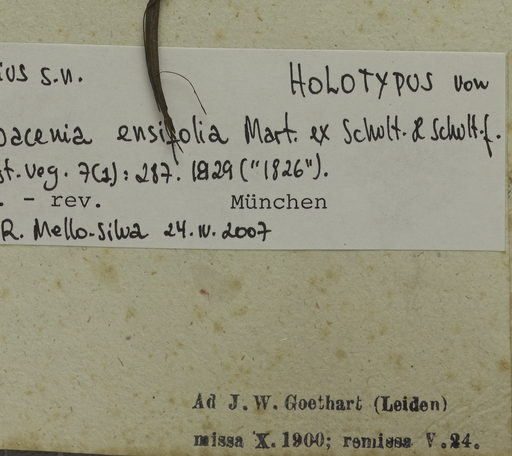 ius s.n. HOLOTYPUS von
bacenia ensifolia Mart. ex Schult. & Schult.f.
st. Veg. 7(1): 287. 1829 ("1826").
. - rev. München
R. Mello-Silva 24.IV.2007
Ad J. W. Goethart (Leiden)
missa X. 1900; remissa V. 24.